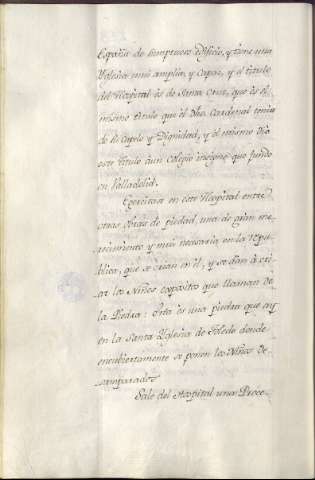 España de sumptuoso edificio, y tiene una
Yglesia mui amplia, y Capaz, y el titulo
del Hospital es de Santa Cruz, que es el
mismo titulo que el dho. Cardenal tenia
de el Capelo y Dignidad, y el mismo dio
este titulo á un Colegio insigne que fundo
en Valladolid.
Exercitase en este Hospital entre
otras obras de piedad, una de gran me-
recimiento y mui necesaria en la repu-
blica, que se crian en él, y se dan à cri-
ar los Niños expositos que llaman de
la Piedra: Esta es una piedra que ay
en la Santa Yglesia de Toledo donde
encubiertamente se ponen los Niños de-
samparados
Sale del Hospital una Proce-